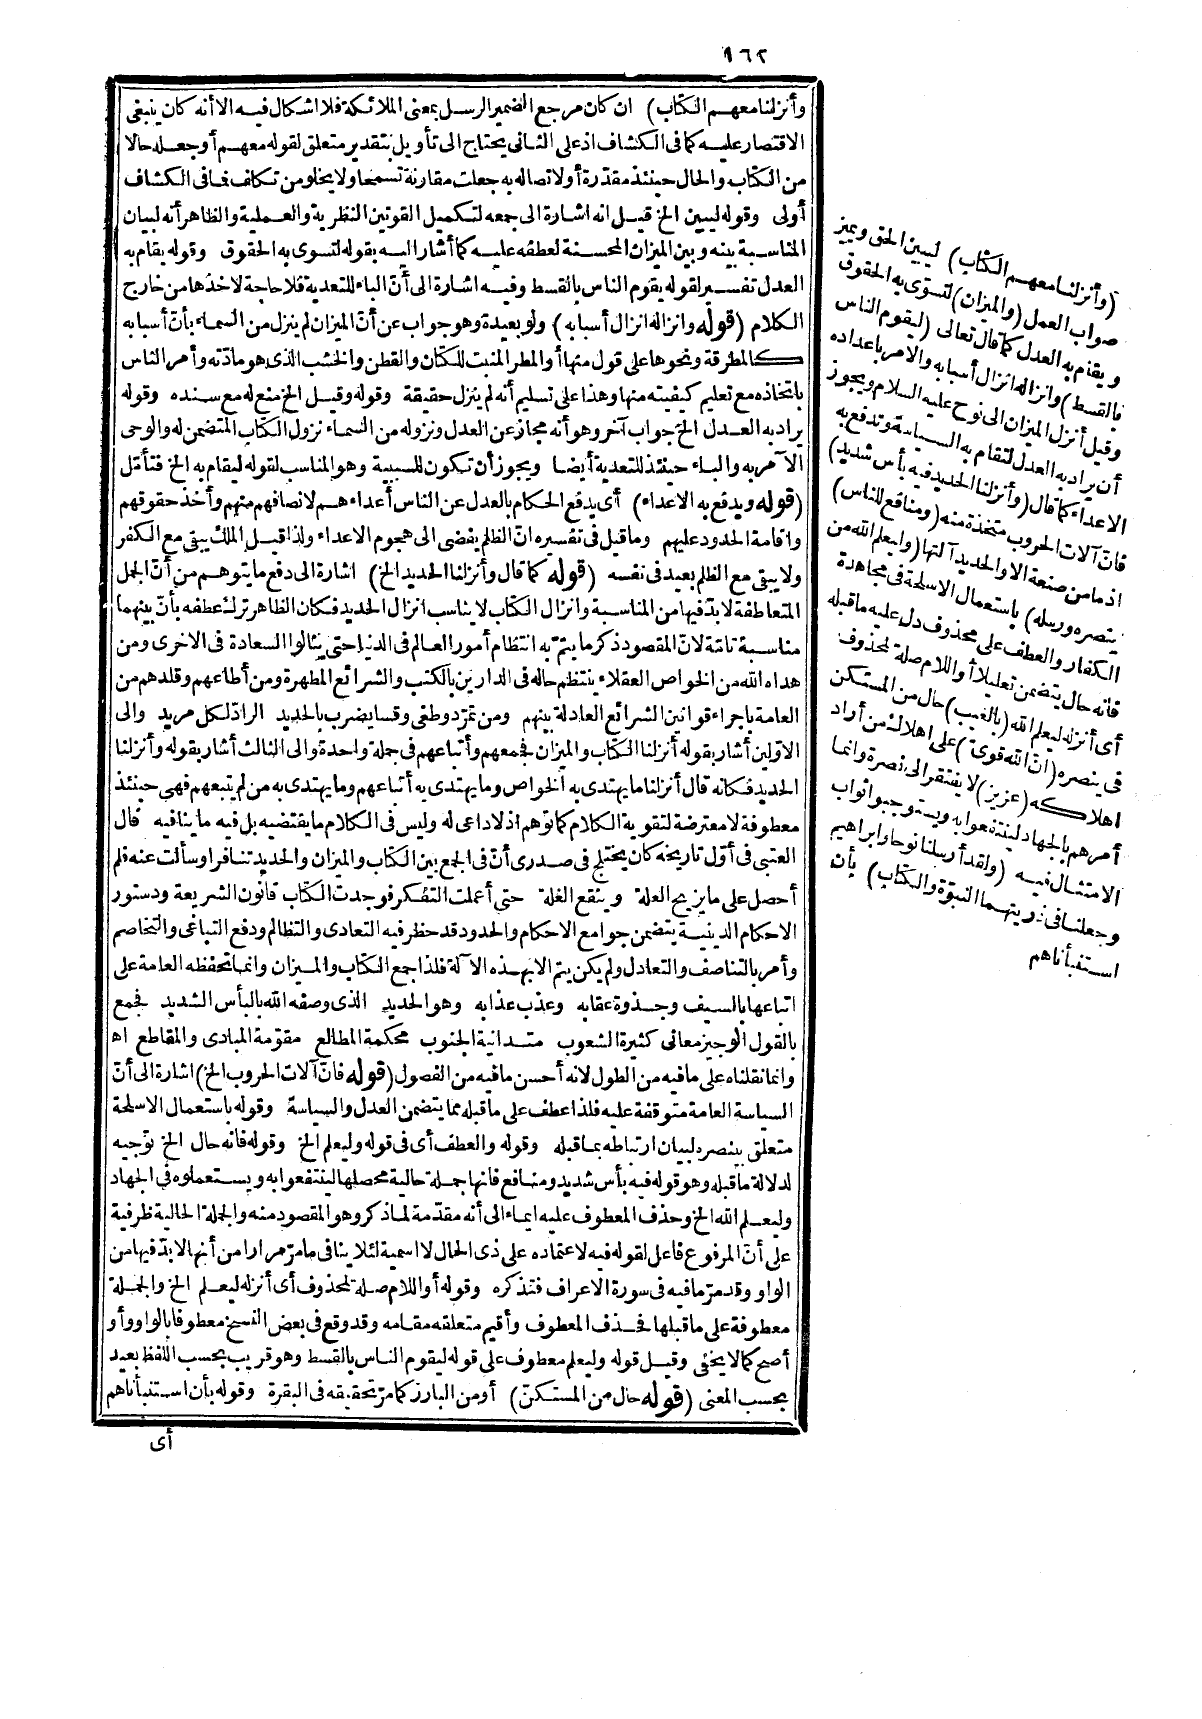 ١٦٢
وأنزلنا معهم الكتاب) ان كان مرجع الضمير الرسل بمعنى الملائكة فلا اشكال فيه الا أنه كان ينبغى
الاقتصار عليه كما فى الكشاف اذ على الثانى يحتاج الى تأويل بتقدير متعلق لقوله معهم أو جعله حالا
من الكتاب والحال حينئذ مقدرة أو لاتصاله به جعلت مقارنة تسمعا ولا يخلو من تكلف فما فى الكشاف
أولى وقوله ليبين الخ قيل انه اشارة الى جمعه لتكميل القوتين النظرية والعملية والظاهر أنه لبيان
المناسبة بينه وبين الميزان المحسنة لعطفه عليه كما أشار اليه بقوله لتسوى به الحقوق وقوله يقام به
العدل تفسير لقوله يقوم الناس بالقسط وفيه اشارة الى أنّ الباء للتعدية فلا حاجة لاخذها من خارج
الكلام (قوله وانزاله انزال أسبابه) ولو بعيدة وهو جواب عن أنّ الميزان لم ينزل من السماء بأنّ أسبابه
كالمطرقة ونحوها على قول منها أو المطر المنبت للكتان والقطن والخشب الذى هو مادّته وأمر الناس
باتخاذه مع تعليم كيفيته منها وهذا على تسليم أنه لم ينزل حقيقة وقوله وقيل الخ منع له مع سنده وقوله
يراد به العدل الخ جواب آخر وهو أنه مجاز عن العدل ونزوله من السماء نزول الكتاب المتضمن له والوحى
الآمر به والباء حينئذ للتعدية أيضا ويجوز أن تكون للسببية وهو المناسب لقوله ليقام به الخ فتأمّل
(قوله ويدفع به الاعداء) أى يدفع الحكام بالعدل عن الناس أعداءهم لانصافهم منهم وأخذ حقوقهم
واقامة الحدود عليهم وما قيل فى تفسيره انّ الظلم يفضى الى هجوم الاعداء ولذا قيل الملك يبقى مع الكفر
ولا يبقى مع الظلم بعيد فى نفسه (قوله كما قال وأنزلنا الحديد الخ) اشارة الى دفع ما يتوهم من أنّ الجمل
المتعاطفة لا بدّ فيها من المناسبة وانزال الكتاب لا يناسب انزال الحديد فكان الظاهر ترك عطفه بأنّ بينهما
مناسبة تامّة لانّ المقصود ذكر ما يتمّ به انتظام أمور العالم فى الدنيا حتى ينالوا السعادة فى الاخرى ومن
هداه الله من الخواص العقلاء ينتظم حاله فى الدارين بالكتب والشرائع المطهرة ومن أطاعهم وقلدهم من
العامة باجراء قوانين الشرائع العادلة بينهم ومن تمرّد وطغى وقسا يضرب بالحديد الرادّ لكل مريد والى
الاوّلين أشار بقوله أنزلنا الكتاب والميزان فجمعهم وأتباعهم فى جملة واحدة والى الثالث أشار بقوله وأنزلنا
الحديد فكانه قال أنزلنا ما يهتدى به الخواص وما يهتدى به أتباعهم وما يهتدى به من لم يتبعهم فهى حينئذ
معطوفة لا معترضة لتقوية الكلام كما توهم اذ لا داعى له وليس فى الكلام ما يقتضيه بل فيه ما ينافيه قال
العتبى فى أوّل تاريخه كان يختلج فى صدرى أنّ فى الجمع بين الكتاب والميزان والحديد تنافرا وسألت عنه فلم
أحصل على ما يزيح العلة وينقع الغلة حتى أعملت التفكر فوجدت الكتاب قانون الشريعة ودستور
الاحكام الدينية يتضمن جوامع الاحكام والحدود قد حظر فيه التعادى والتظالم ودفع التباغى والتخاصم
وأمر بالتناصف والتعادل ولم يكن يتم الا بهذه الآلة فلذا جمع الكتاب والميزان وانما تحفظه العامة على
اتباعها بالسيف وجذوة عقابه وعذب عذابه وهو الحديد الذى وصفه الله بالبأس الشديد فجمع
بالقول الوجيز معانى كثيرة الشعوب متدانية الجنوب محكمة المطالع مقوّمة المبادى والمقاطع اه
وانما نقلناه على ما فيه من الطول لانه أحسن ما فيه من الفصول (قوله فانّ آلات الحروب الخ) اشارة الى أنّ
السياسة العامة متوقفة عليه فلذا عطف على ما قبله مما يتضمن العدل والسياسة وقوله باستعمال الاسلحة
متعلق بينصره لبيان ارتباطه بما قبله وقوله والعطف أى فى قوله وليعلم الخ وقوله فانه حال الخ توجيه
لدلالة ما قبله وهو قوله فيه بأس شديد ومنافع فانها جملة حالية محصلها لينتفعوا به ويستعملوه فى الجهاد
وليعلم الله الخ وحذف المعطوف عليه ايماء الى أنه مقدّمة لما ذكر وهو المقصود منه والجملة الحالية ظرفية
على أنّ المرفوع فاعل لقوله فيه لاعتماده على ذى الحال لا اسمية لئلا ينافى ما مرّ مرارا من أنها لا بدّ فيها من
الواو وقد مرّ ما فيه فى سورة الاعراف فتذكره وقوله أو اللام صلة لمحذوف أى أنزله ليعلم الخ والجملة
معطوفة على ما قبلها فحذف المعطوف وأقيم متعلقه مقامه وقد وقع فى بعض النسخ معطوفا بالواو وأو
أصح كما لا يخفى وقيل قوله وليعلم معطوف على قوله ليقوم الناس بالقسط وهو قريب بحسب اللفظ بعيد
بحسب المعنى (قوله حال من المستكنّ) أو من البارز كما مرّ تحقيقه فى البقرة وقوله بأن استنبأناهم
أى
(وأنزلنا معهم الكتاب) ليبين الحق ويميز
صواب العمل (والميزان) لتسوّى به الحقوق
ويقام به العدل كما قال تعالى (ليقوم الناس
بالقسط) وانزاله انزال أسبابه والامر باعداده
وقيل أنزل الميزان الى نوح عليه السلام ويجوز
أن يراد به العدل لتقام به السياسة وتدفع به
الاعداء كما قال (وأنزلنا الحديد فيه بأس شديد)
فانّ آلات الحروب متخذة منه (ومنافع للناس)
اذ ما من صنعة الا والحديد آلتها (وليعلم الله من
ينصره ورسله) باستعمال الاسلحة فى مجاهدة
الكفار والعطف على محذوف دل عليه ما قبله
فانه حال يتضمن تعليلا أو اللام صلة لمحذوف
أى أنزله ليعلم الله (بالغيب) حال من المستكن
فى ينصره (انّ الله قوىّ) على اهلاك من أراد
اهلاكه (عزيز) لا يفتقر الى نصرة وانما
أمرهم بالجهاد لينتفعوا به ويستوجبوا ثواب
الامتثال فيه (ولقد أرسلنا نوحا وابراهيم
وجعلنا فى ذريتهما النبوّة والكتاب) بأن
استنبأناهم